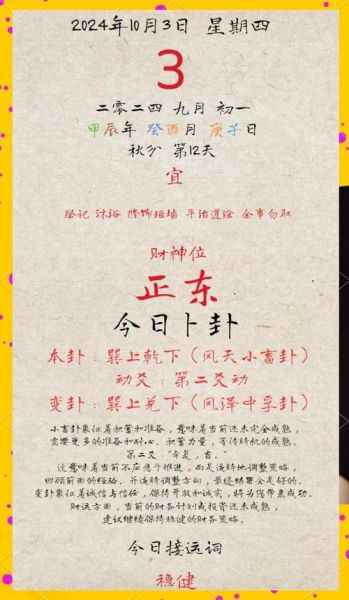 2024年10月3日 星期四
3
二零二四 九月 初一
甲辰年 癸酉月 庚子日
秋分 第12天
宜
祭祀 沐浴 修饰垣墙 平治道涂 余事勿取
财神位
正东
今日卜卦
本卦：巽上乾下（风天小畜卦）
动爻：第二爻动
变卦：巽上兑下（风泽中孚卦）
小畜卦象征着积蓄和准备，意味着当前还未完全成熟，
需要更多的准备和耐心。积蓄力量，等待时机的成熟。
第二爻："牵复，吉。"
这意味着当前不应急于推进，而是适时地调整策略，
回顾前面的经验，并适时调整方向，最终结果会是好的。
变卦象征着诚信与信任，保持开放和诚实，将为你带来成功。
财运方面，当前的财务计划或投资还未成熟，
建议继续保持稳健的财务策略。
今日接运词
稳健